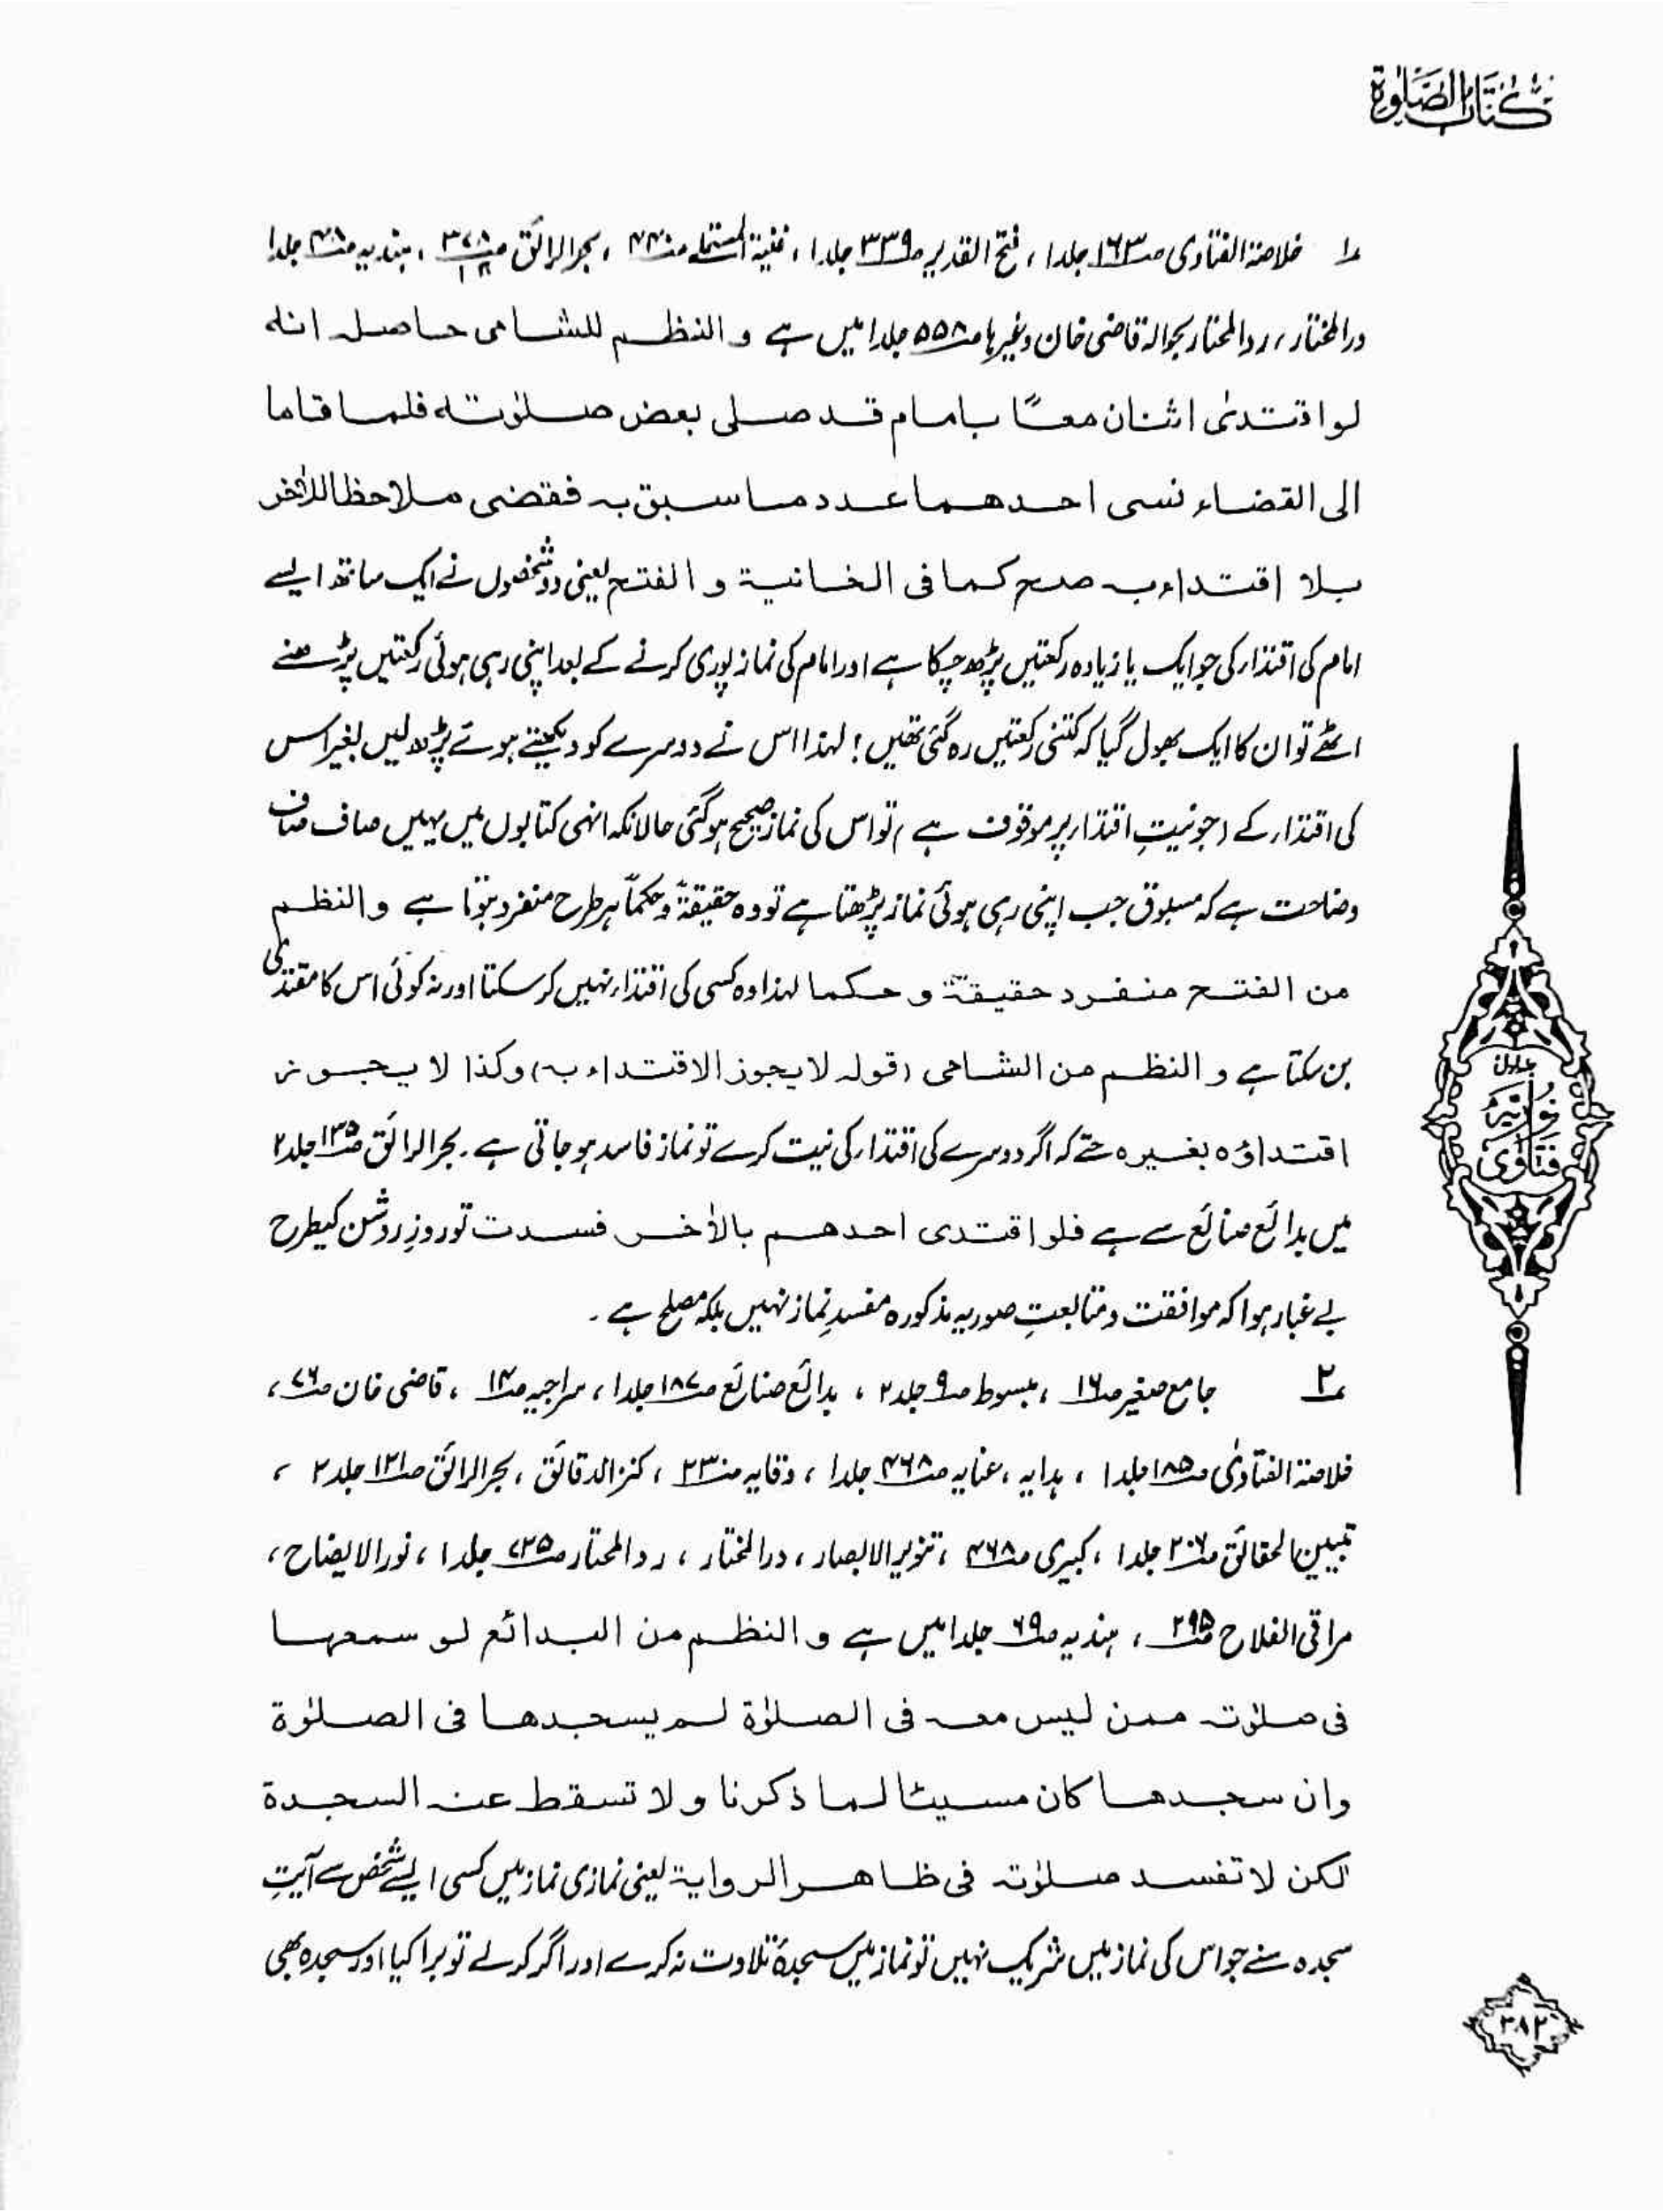 کتاب الصلوٰۃ
۱؎ خلاصۃ الفتاوی صـ۱۶۳ جلد۱، فتح القدیر صـ۳۳۹ جلد۱، غنیۃ المستملے صـ۴۴۰، بحر الرائق صـ۳۷۸، ہندیہ صـ۴۸ جلد۱
در المختار، رد المحتار بحوالہ قاضی خان وغیرہا صـ۵۵۸ جلد۱ میں ہے و النظم للشامی حاصلہ انہ
لو اقتدیٰ اثنان معًا بامام قد صلی بعض صلوٰتہ فلما قاما
الی القضاء نسی احدھما عدد ما سبق بہ فقضی ملاحظا للاٰخر
بلا اقتداء بہ صح کما فی الخانیۃ و الفتح یعنی دو شخصوں نے ایک ساتھ ایسے
امام کی اقتداء کی جو ایک یا زیادہ رکعتیں پڑھ چکا ہے اور امام کی نماز پوری کرنے کے بعد اپنی رہی ہوئی رکعتیں پڑھنے
اٹھے تو ان کا ایک بھول گیا کہ کتنی رکعتیں رہ گئی تھیں؟ لہذا اس نے دوسرے کو دیکھتے ہوئے پڑھ لیں بغیر اس
کی اقتداء کے (جو نیتِ اقتداء پر موقوف ہے) تو اس کی نماز صحیح ہو گئی حالانکہ انہی کتابوں میں یہیں صاف صاف
وضاحت ہے کہ مسبوق جب اپنی رہی ہوئی نماز پڑھتا ہے تو وہ حقیقۃً و حکماً ہر طرح منفرد ہوتا ہے و النظم
من الفتح منفرد حقیقۃ و حکما لہذا وہ کسی کی اقتداء نہیں کر سکتا اور نہ کوئی اس کا مقتدی
بن سکتا ہے و النظم من الشامی (قولہ لا یجوز الاقتداء بہ) وکذا لا یجوز
اقتداؤہ بغیرہ حتے کہ اگر دوسرے کی اقتداء کی نیت کرے تو نماز فاسد ہو جاتی ہے۔ بحر الرائق صـ۱۳۵ جلد۲
میں بدائع صنائع سے ہے فلو اقتدی احدھم بالاٰخر فسدت تو روزِ روشن کیطرح
بے غبار ہوا کہ موافقت و متابعتِ صوریہ مذکورہ مفسدِ نماز نہیں بلکہ مصلح ہے۔
۲؎ جامع صغیر صـ۱۶، مبسوط صـ۹ جلد۲، بدائع صنائع صـ۱۸۷ جلد۱، سراجیہ صـ۱۴، قاضی خان صـ۷۶،
خلاصۃ الفتاویٰ صـ۱۸۵ جلد۱، ہدایہ، عنایہ صـ۴۶۸ جلد۱، وقایہ صـ۲۳۰، کنز الدقائق، بحر الرائق صـ۱۲۱ جلد۲،
تبیین الحقائق صـ۲۰۶ جلد۱، کبیری صـ۴۶۸، تنویر الابصار، در المختار، رد المحتار صـ۷۲۵ جلد۱، نور الایضاح،
مراقی الفلاح صـ۲۹۵، ہندیہ صـ۶۹ جلد۱ میں ہے و النظم من البدائع لو سمعہا
فی صلوٰتہ ممن لیس معہ فی الصلوٰۃ لم یسجدھا فی الصلوٰۃ
وان سجدھا کان مسیئا لما ذکرنا و لا تسقط عنہ السجدۃ
لکن لا تفسد صلوٰتہ فی ظاھر الروایۃ یعنی نمازی نماز میں کسی ایسے شخص سے آیتِ
سجدہ سنے جو اس کی نماز میں شریک نہیں تو نماز میں سجدۂ تلاوت نہ کرے اور اگر کر لے تو برا کیا اور سجدہ بھی
جلد اول
نوریہ
فتاوی
۳۸۲